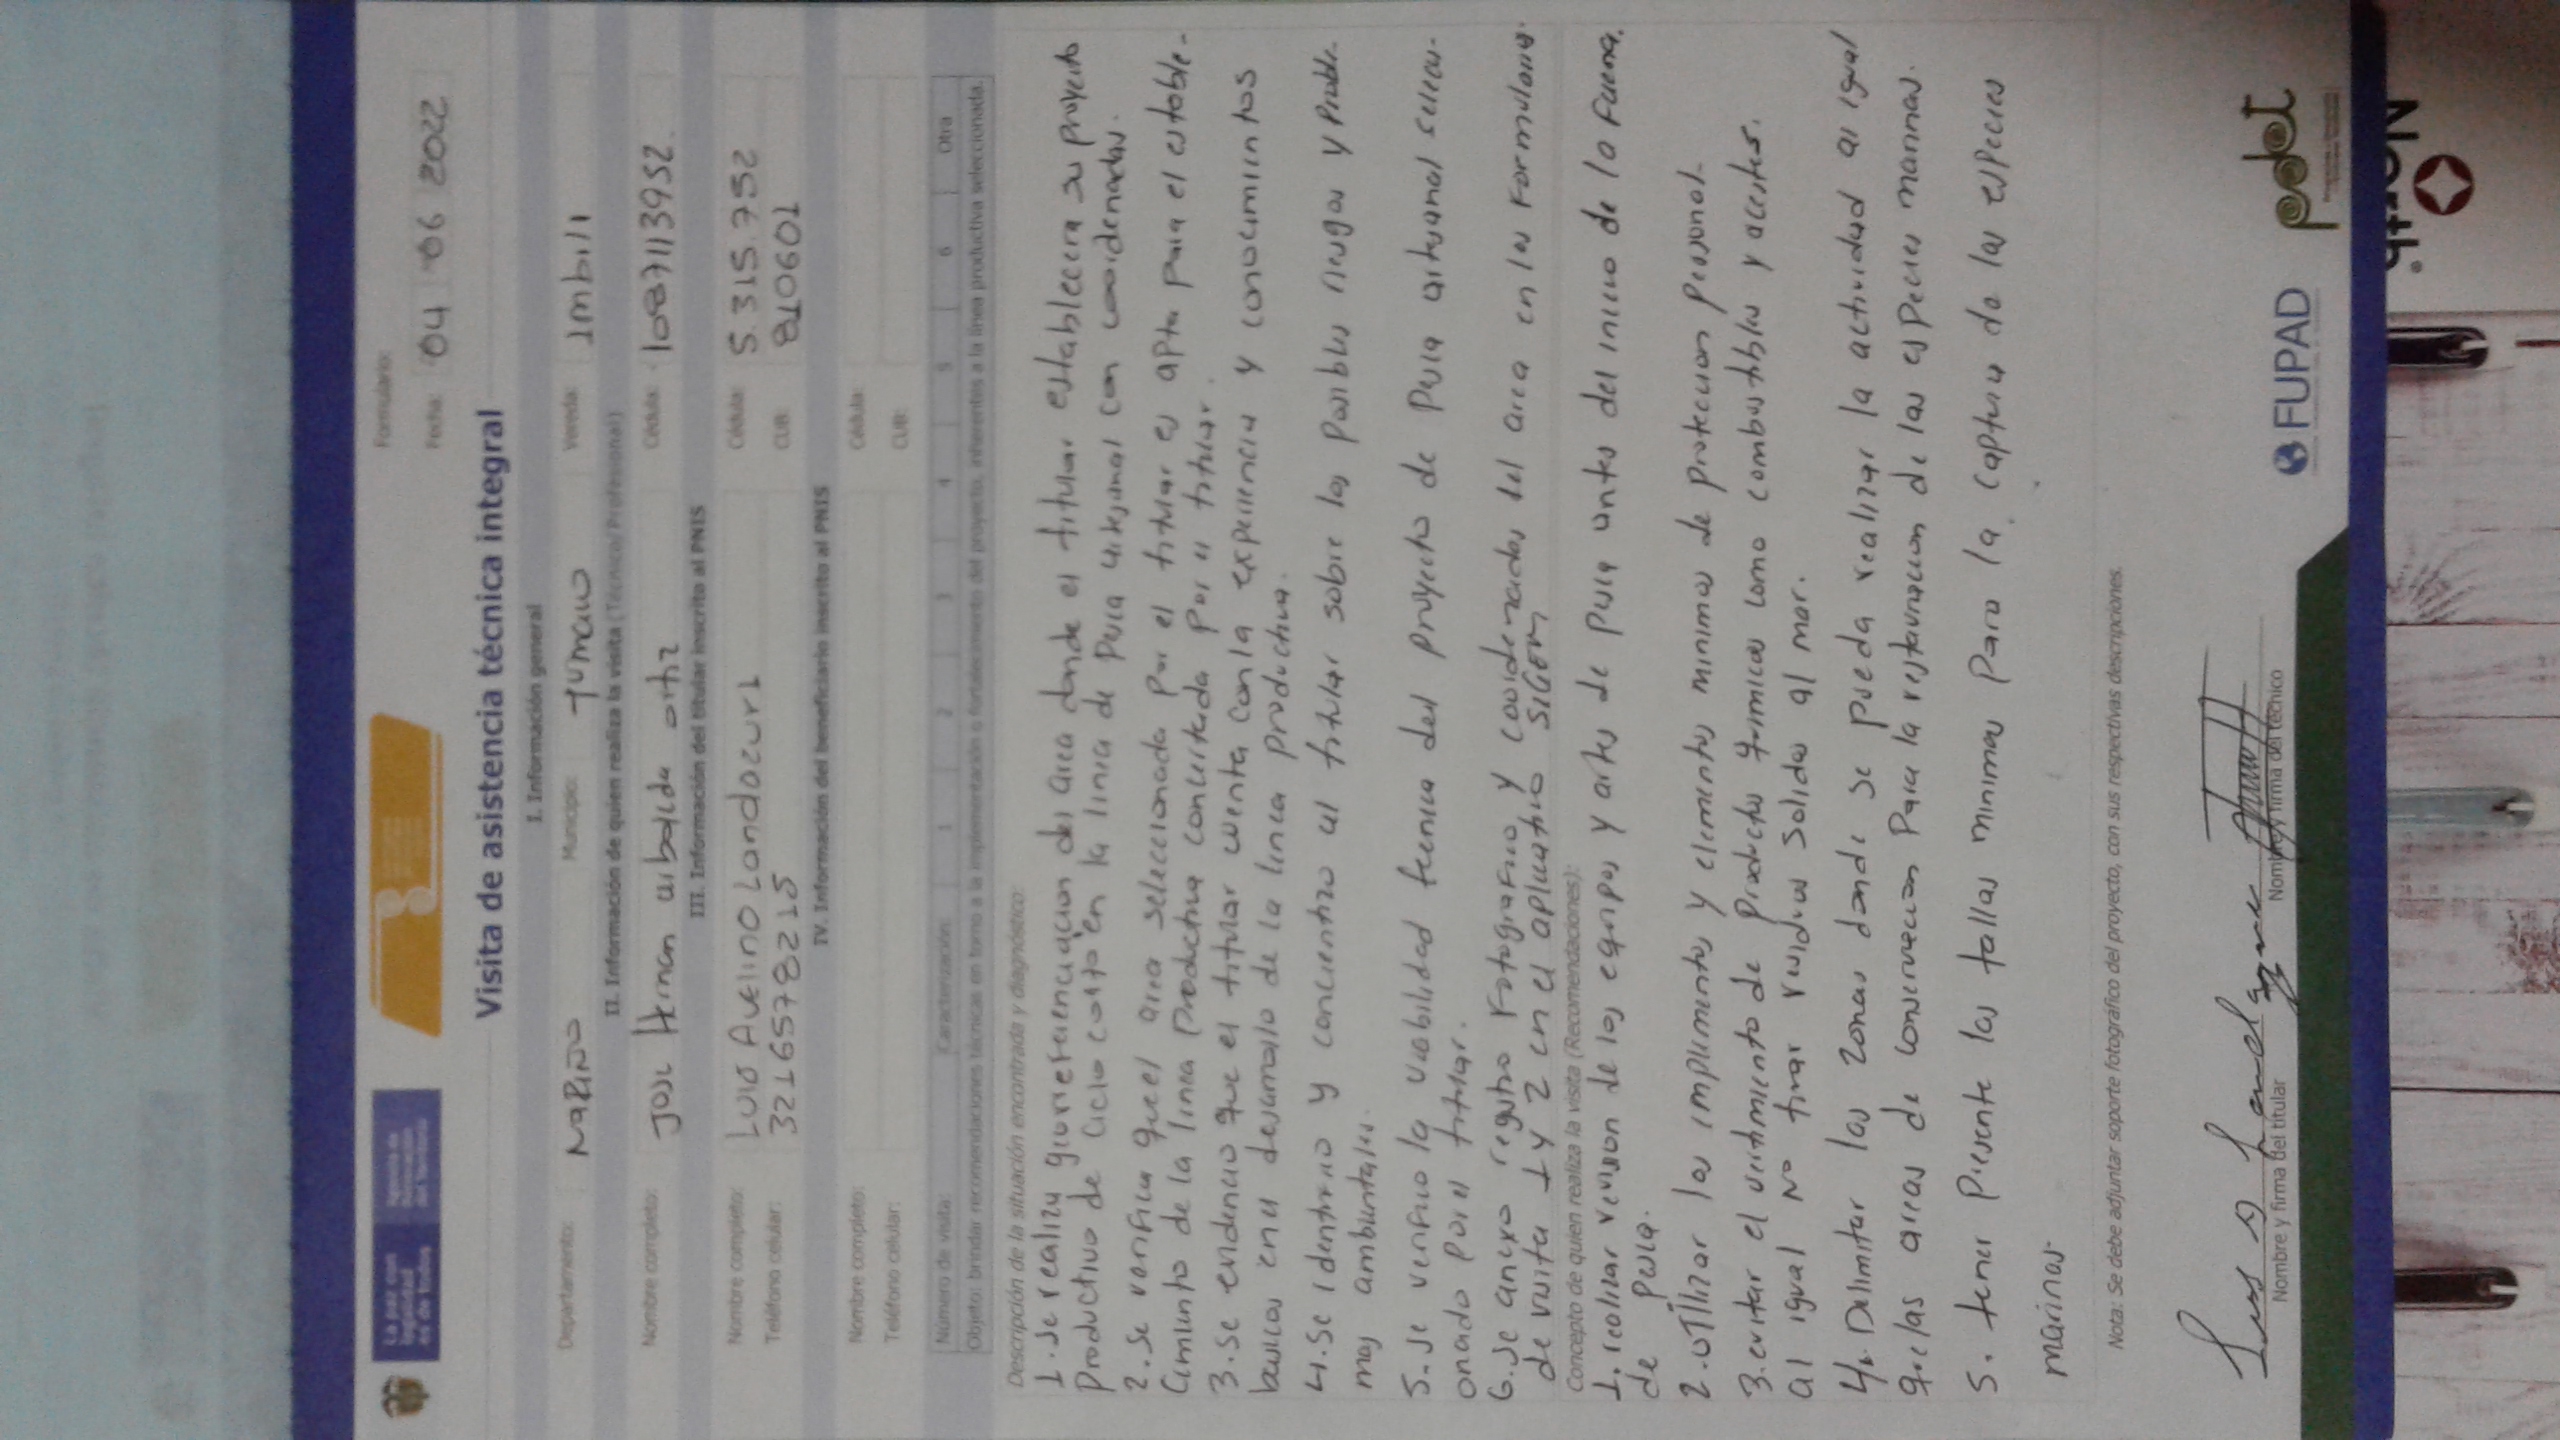 La paz con legalidad es de todos
Agencia de Renovación del Territorio
Formulario:
Fecha: 04 06 2022
Visita de asistencia técnica integral
I. Información general
Departamento: NARIÑO Municipio: TUMACO Vereda: Imbili
II. Información de quien realiza la visita (Técnico/Profesional)
Nombre completo: Jose Hernan arboleda ortiz Cédula: 1087113952.
III. Información del titular inscrito al PNIS
Nombre completo: LUIS AVELINO Landazuri Cédula: 5.315.752
Teléfono celular: 3216578215 CUB: 810601
IV. Información del beneficiario inscrito al PNIS
Nombre completo: Cédula:
Teléfono celular: CUB:
Número de visita: Caracterización: 1 2 3 4 5 6 Otra
Objeto: brindar recomendaciones técnicas en torno a la implementación o fortalecimiento del proyecto, inherentes a la línea productiva seleccionada.
Descripción de la situación encontrada y diagnóstico:
1. Se realizo georeferenciacion del area donde el titular establecera su proyecto
Productivo de ciclo corto en la linea de Pesca artesanal con coordenadas.
2. Se verifica que el area seleccionada Por el titular es apta para el estable-
Cimiento de la linea Productiva concertada Por el titular.
3. Se evidencio que el titular cuenta con la experiencia y conocimientos
basicos en el desarrollo de la linea productiva.
4. Se identifico y concientizo al titular sobre los posibles riesgos y Proble-
mas ambientales.
5. Se verifico la viabilidad tecnica del proyecto de Pesca artesanal selecci-
onado por el titular.
6. Se anexo registro Fotografico y coordenadas del area en los Formularios
de visita 1 y 2 en el aplicativo SIGEM
Concepto de quien realiza la visita (Recomendaciones):
1. realizar revision de los equipos y artes de Pesca antes del inicio de la Faena
de Pesca.
2. utilizar los implementos y elementos minimos de proteccion Personal.
3. evitar el vertimiento de Productos quimicos como combustibles y aceites.
al igual No tirar residuos solidos al mar.
4. Delimitar las zonas donde se pueda realizar la actividad al igual
que las areas de conservacion Para la restauracion de las especies marinas.
5. tener Presente las tallas minimas Para la captura de las especies
marinas.
Nota: Se debe adjuntar soporte fotográfico del proyecto, con sus respectivas descripciones.
Nombre y firma del titular
Nombre y firma del técnico
FUPAD
pdet
North